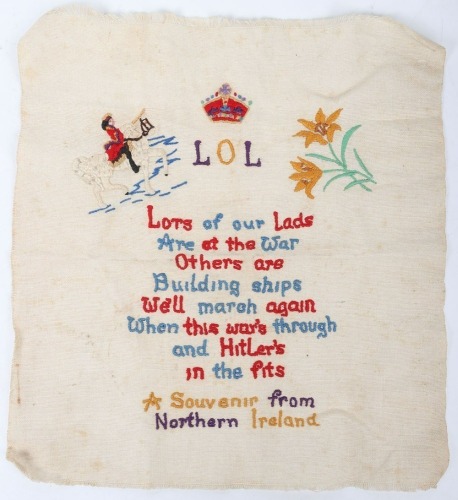 LOL
Lots of our Lads
Are at the War
Others are
Building ships
We'll march again
When this war's through
and Hitler's
in the fits
A Souvenir from
Northern Ireland